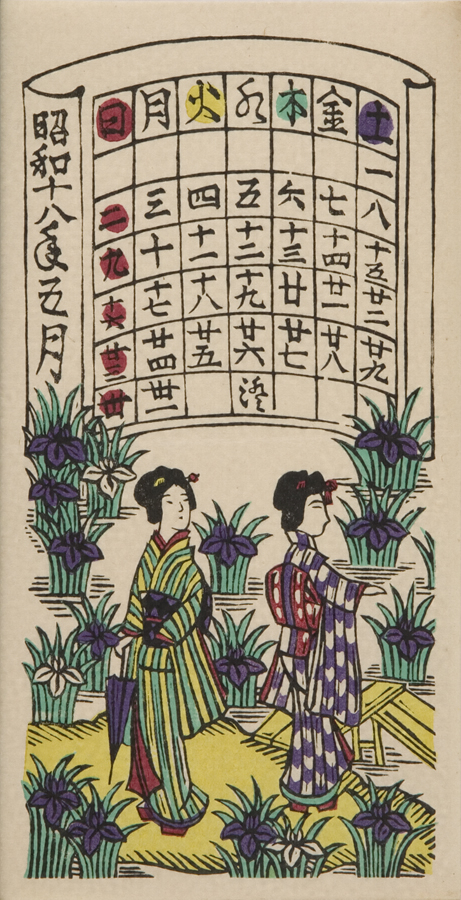 昭和十八年五月
日 月 火 水 木 金 土
一
二 三 四 五 六 七 八
九 十 十一 十二 十三 十四 十五
十六 十七 十八 十九 廿 廿一 廿二
廿三 廿四 廿五 廿六 廿七 廿八 廿九
卅 卅一